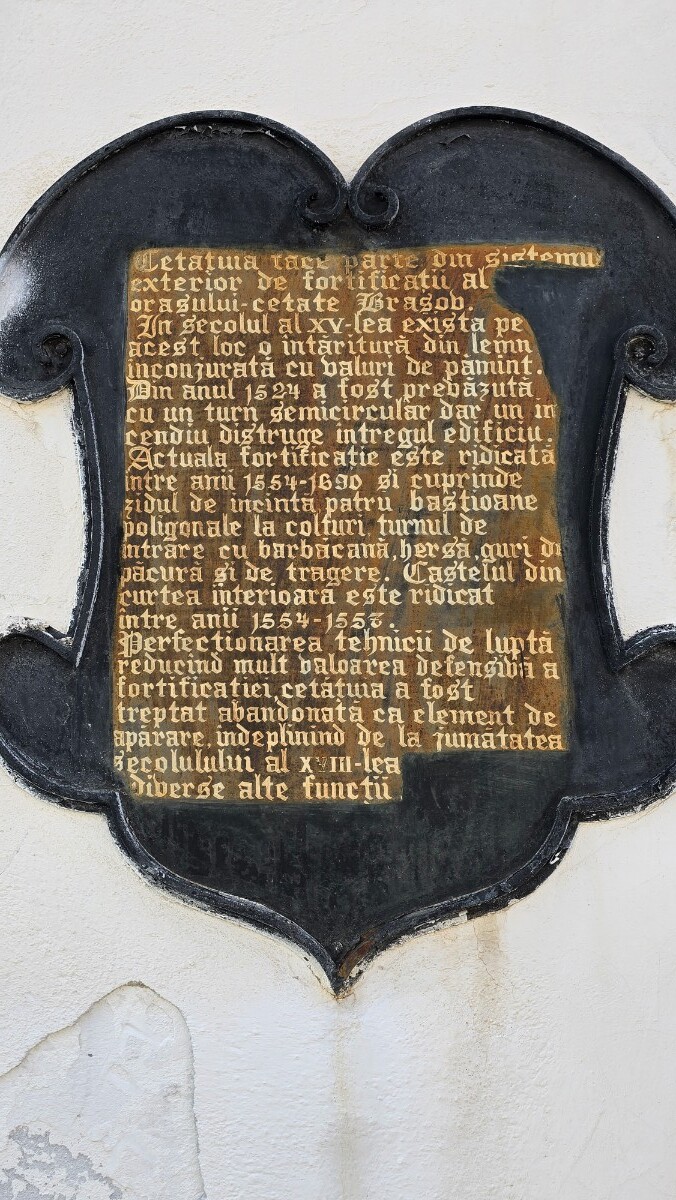 Cetatuia face parte din sistemu
exterior de fortificatii al
orasului-cetate Brasov.
In secolul al XV-lea exista pe
acest loc o întăritură din lemn
inconjurată cu valuri de pămint.
Din anul 1524 a fost prevăzută
cu un turn semicircular dar un in
cendiu distruge intregul edificiu.
Actuala fortificatie este ridicată
intre anii 1554-1630 si cuprinde
zidul de incintă patru bastioane
poligonale la colturi turnul de
intrare cu barbăcană, hersă, guri de
păcură si de tragere. Castelul din
curtea interioară este ridicat
între anii 1554-1557.
Perfectionarea tehnicii de luptă
reducind mult valoarea defensivă a
fortificatiei, cetătuia a fost
treptat abandonată ca element de
apărare, indeplinind de la jumătatea
secolulului al XVIII-lea
diverse alte funcții